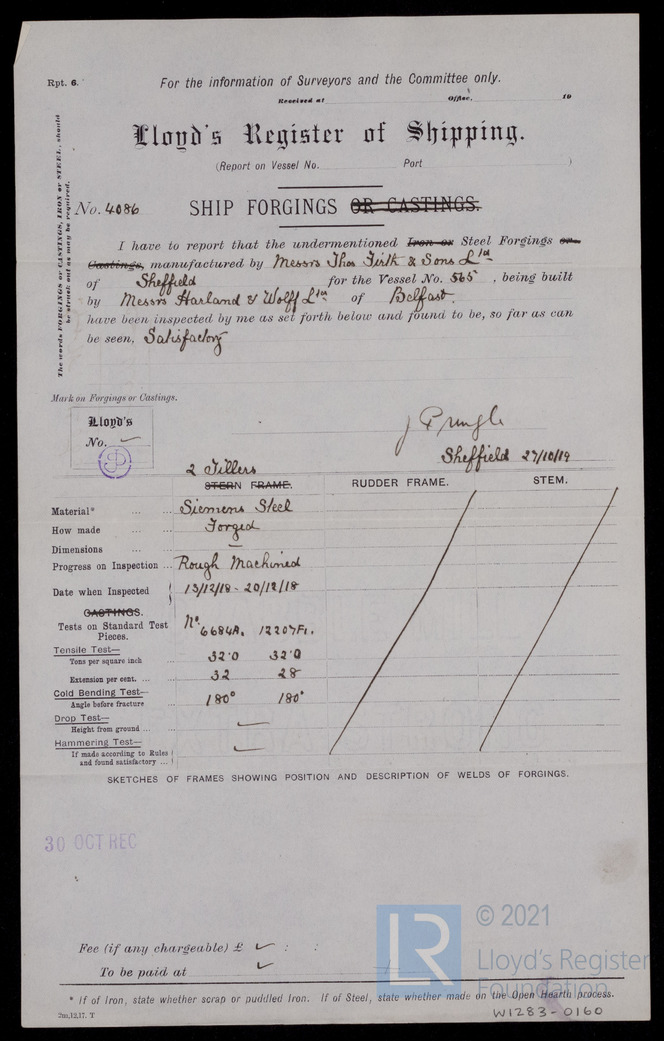 Rpt. 6.
For the information of Surveyors and the Committee only.
Received at Office, 19
Lloyd's Register of Shipping.
(Report on Vessel No. Port )
The words FORGINGS or CASTINGS, IRON or STEEL, should
be struck out as may be required.
No. 4086
SHIP FORGINGS OR CASTINGS.
I have to report that the undermentioned Iron or Steel Forgings or
Castings, manufactured by Messrs Thos Firth & Sons Ltd
of Sheffield for the Vessel No. 565, being built
by Messrs Harland & Wolff Ltd of Belfast.
have been inspected by me as set forth below and found to be, so far as can
be seen, Satisfactory
Mark on Forgings or Castings.
Lloyd's
No.
J Pringle
Sheffield 27/10/19
2 Tillers
STERN FRAME. RUDDER FRAME. STEM.
Material* ... ... Siemens Steel
How made ... ... Forged
Dimensions ... ... —
Progress on Inspection ... Rough Machined
Date when Inspected 13/12/18 - 20/12/18
CASTINGS.
Tests on Standard Test
Pieces. No. 6684A. 12207F1.
Tensile Test—
Tons per square inch ... 32.0 32.0
Extension per cent. ... ... 32 28
Cold Bending Test—
Angle before fracture ... 180° 180°
Drop Test—
Height from ground ... ...
Hammering Test—
If made according to Rules
and found satisfactory ...
SKETCHES OF FRAMES SHOWING POSITION AND DESCRIPTION OF WELDS OF FORGINGS.
30 OCT REC
Fee (if any chargeable) £ : :
To be paid at
* If of Iron, state whether scrap or puddled Iron. If of Steel, state whether made on the Open Hearth process.
2m,12,17. T
W1283-0160
LR
© 2021
Lloyd's Register
Foundation